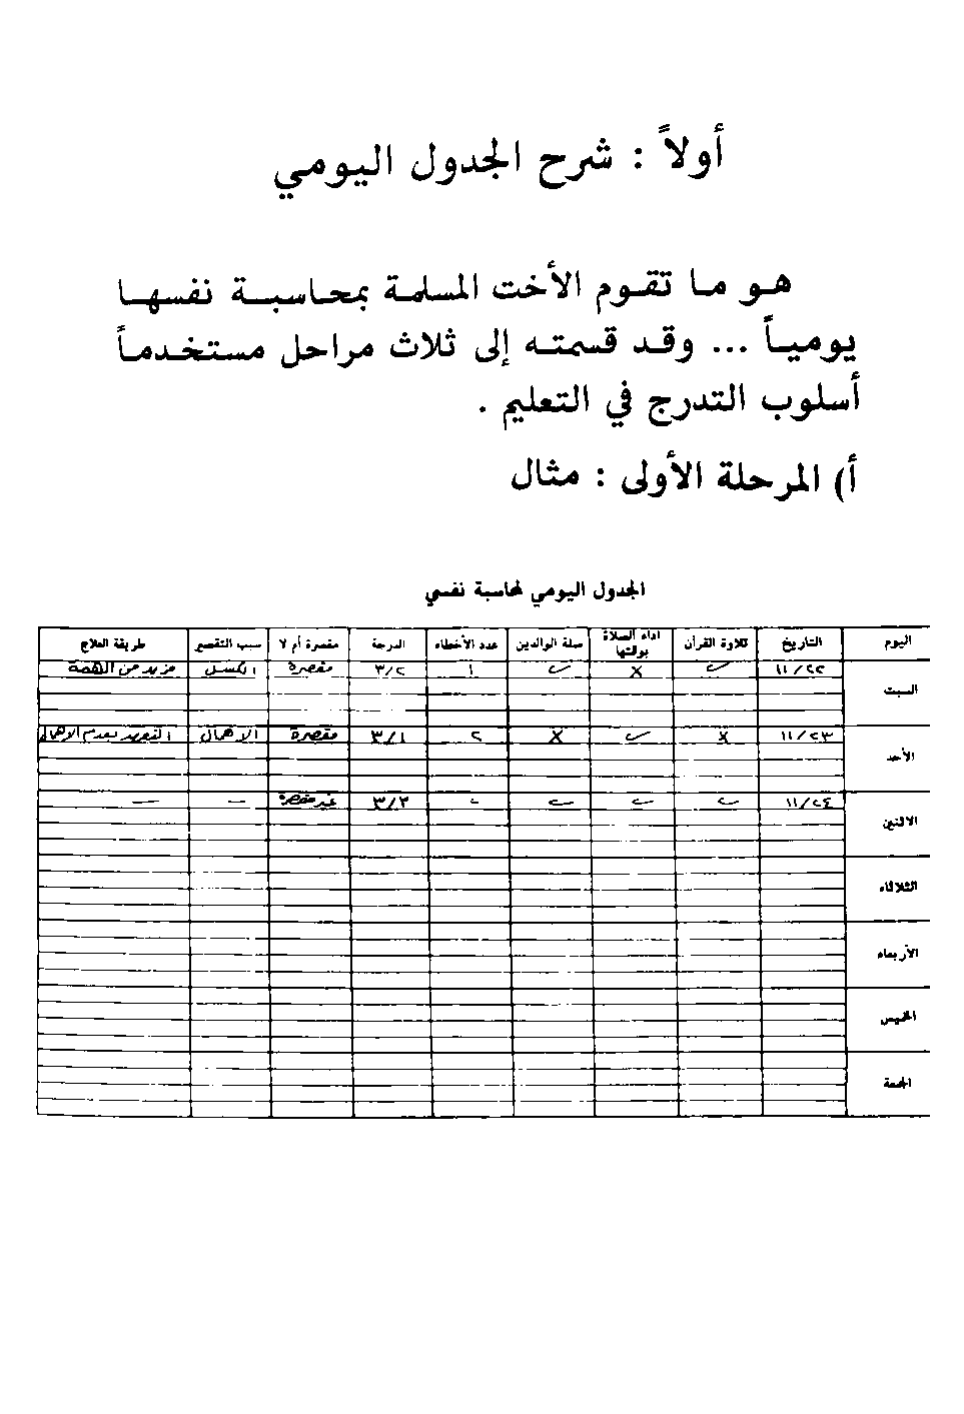 أولاً : شرح الجدول اليومي
هو ما تقوم الأخت المسلمة بمحاسبة نفسها
يومياً ... وقد قسمته إلى ثلاث مراحل مستخدماً
أسلوب التدرج في التعليم .
أ) المرحلة الأولى : مثال
الجدول اليومي لمحاسبة نفسي
اليوم التاريخ تلاوة القرآن اداء الصلاة بوقتها صلة الوالدين عدد الأخطاء الدرجة مقصرة أم لا سبب التقصير طريقة العلاج
السبت ١١/٢٢ ✓ X ✓ ١ ٣/٢ مقصرة الكسل مزيد من الهمة
الأحد ١١/٢٣ X ✓ X ٢ ٣/١ مقصرة الاهمال التعهد بعدم الاهمال
الاثنين ١١/٢٤ ✓ ✓ ✓ - ٣/٣ غير مقصرة — —
الثلاثاء
الأربعاء
الخميس
الجمعة